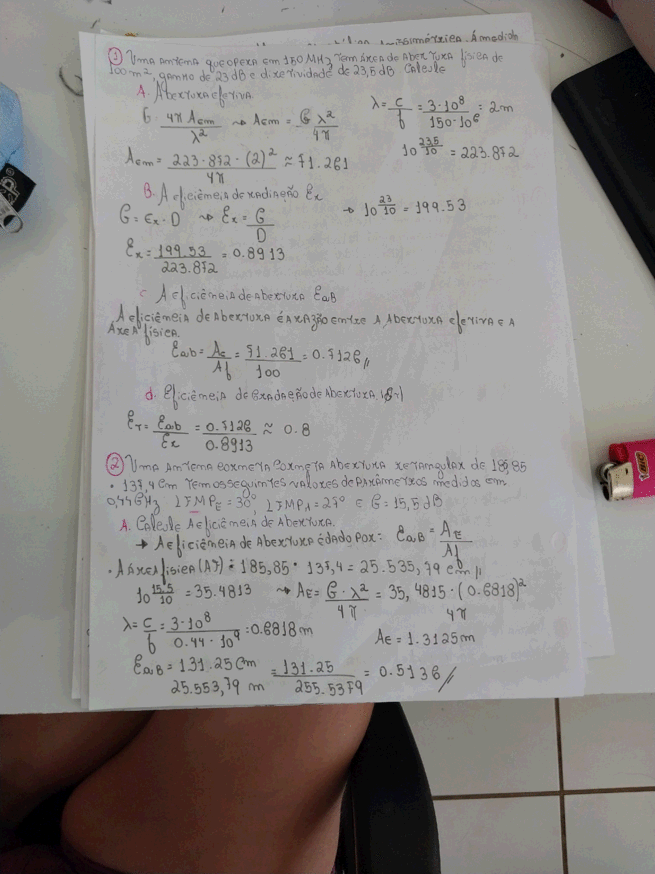 ① Uma antena que opera em 150 MHz tem área de abertura física de
100 m², ganho de 23 dB e diretividade de 23,5 dB Calcule
A. Abertura efetiva
G 4π Aem / λ² → Aem = G λ² / 4π
λ = c / f = 3·10⁸ / 150·10⁶ = 2m
Aem = 223.872 · (2)² / 4π ≈ 71.261
10^(23,5/10) = 223.872
B. A eficiência de radiação Er
G = Er · D → Er = G / D
→ 10^(23/10) = 199.53
Er = 199.53 / 223.872 = 0.8913
C A eficiência de abertura Eab
A eficiência de abertura é a razão entre a abertura efetiva e a
área física.
Eab = Ae / Af = 71.261 / 100 = 0.7126 //
d. Eficiência de de abertura
Er = Eab / Er = 0.7126 / 0.8913 ≈ 0.8
② Uma antena corneta corneta abertura retangular de 185,85
· 137,4 cm tem os seguintes valores de parâmetros medidos em
0,44 GHz LFMPE = 30° LFMPA = 27° e G = 15,5 dB
A. Calcule a eficiência de abertura.
→ A eficiência de abertura é dado por: Eab = AE / Af
· A área física (Af) = 185,85 · 137,4 = 25.535,79 cm //
10^(15,5/10) = 35.4813
→ AE = G · λ² / 4π = 35,4815 · (0.6818)² / 4π
λ = c / f = 3·10⁸ / 0.44·10⁹ = 0.6818 m
AE = 1.3125m
Eab = 131.25 cm / 25.553,79 m = 131.25 / 255.5379 = 0.5136 //